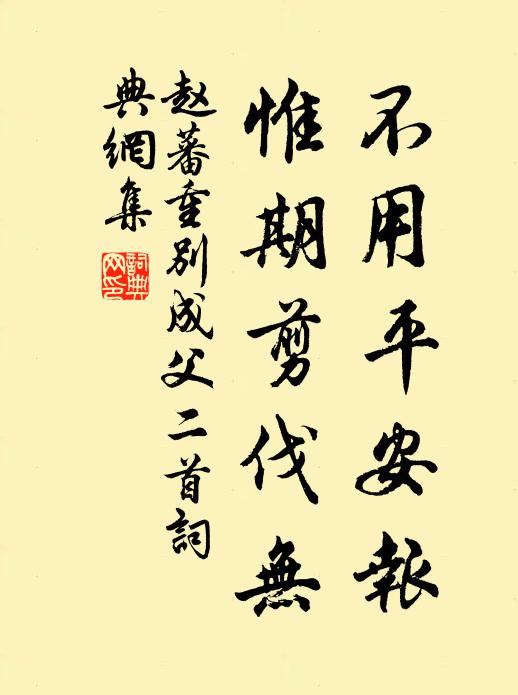 不用平安報
惟期剪伐無
赵蕃重别成父二首詞
典網集
詞典
网印